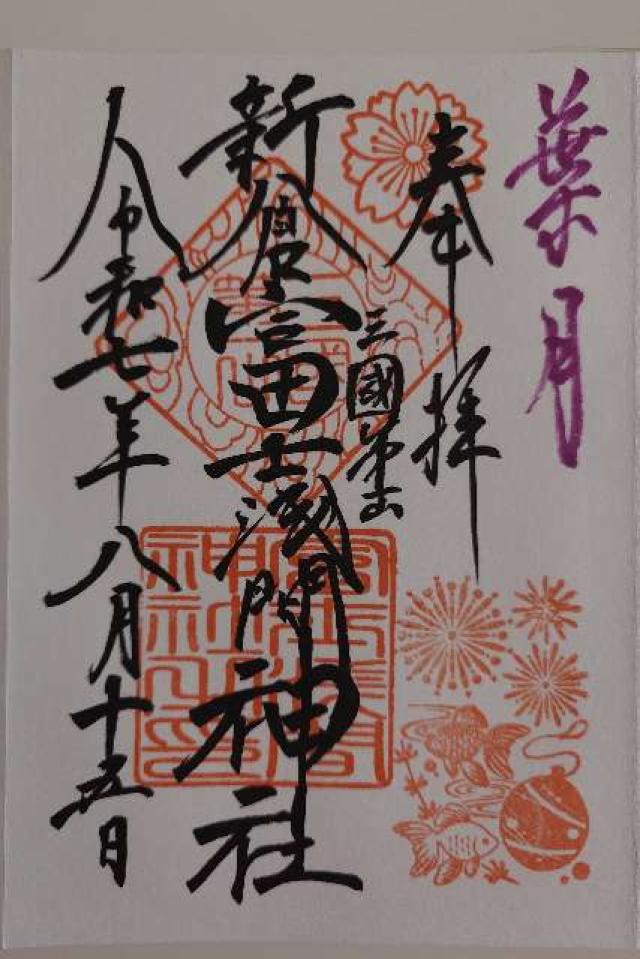 葉月
奉拝
三國第一山
新倉富士浅間神社
令和七年八月十五日